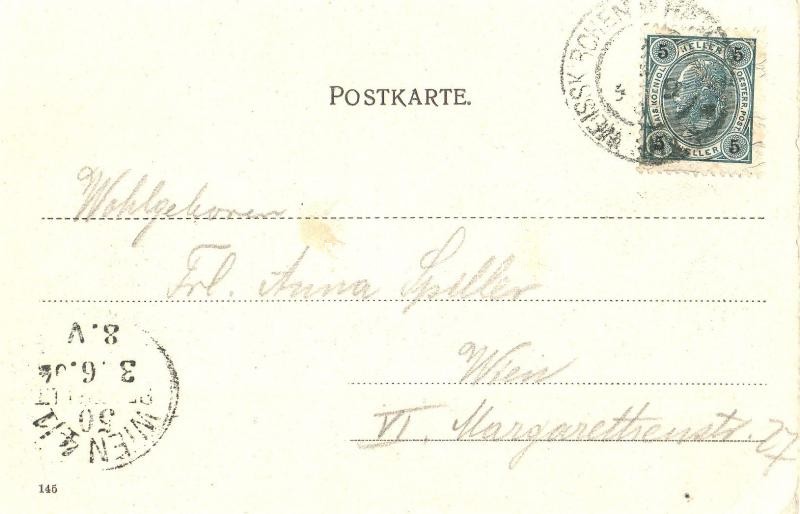 POSTKARTE.
5 HELLER 5
KAIS. KOENIGL. OESTERR. POST.
5 HELLER 5
WEISSKIRCHEN
Wohlgeboren
Frl. Anna Spiller
Wien
VI. Margarethenstr. 27
WIEN 4/1
50
3.6.04
8.V
145